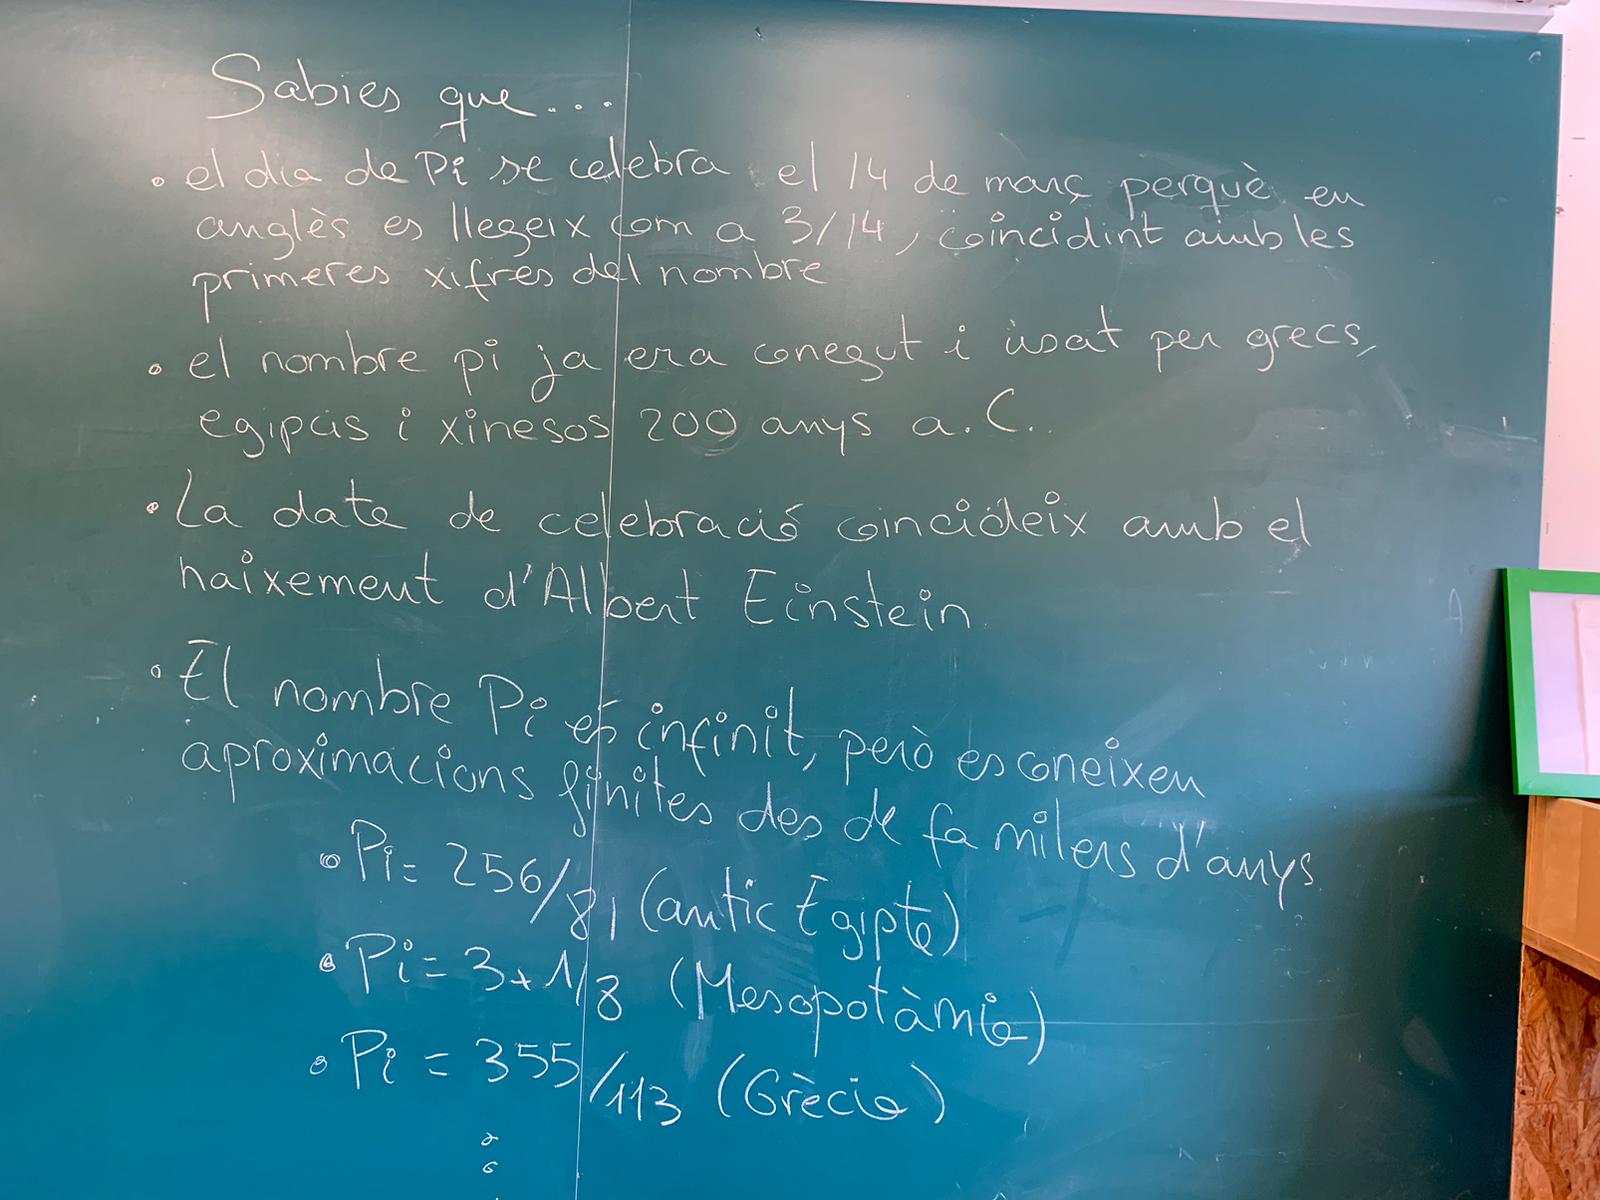 Sabies que...
• el dia de Pi se celebra el 14 de març perquè en
anglès es llegeix com a 3/14, coincidint amb les
primeres xifres del nombre
• el nombre pi ja era conegut i usat per grecs,
egipcis i xinesos 200 anys a.C..
• La data de celebració coincideix amb el
naixement d'Albert Einstein
• El nombre Pi és infinit, però es coneixen
aproximacions finites des de fa milers d'anys
• Pi = 256/81 (antic Egipte)
• Pi = 3+1/8 (Mesopotàmia)
• Pi = 355/113 (Grècia)